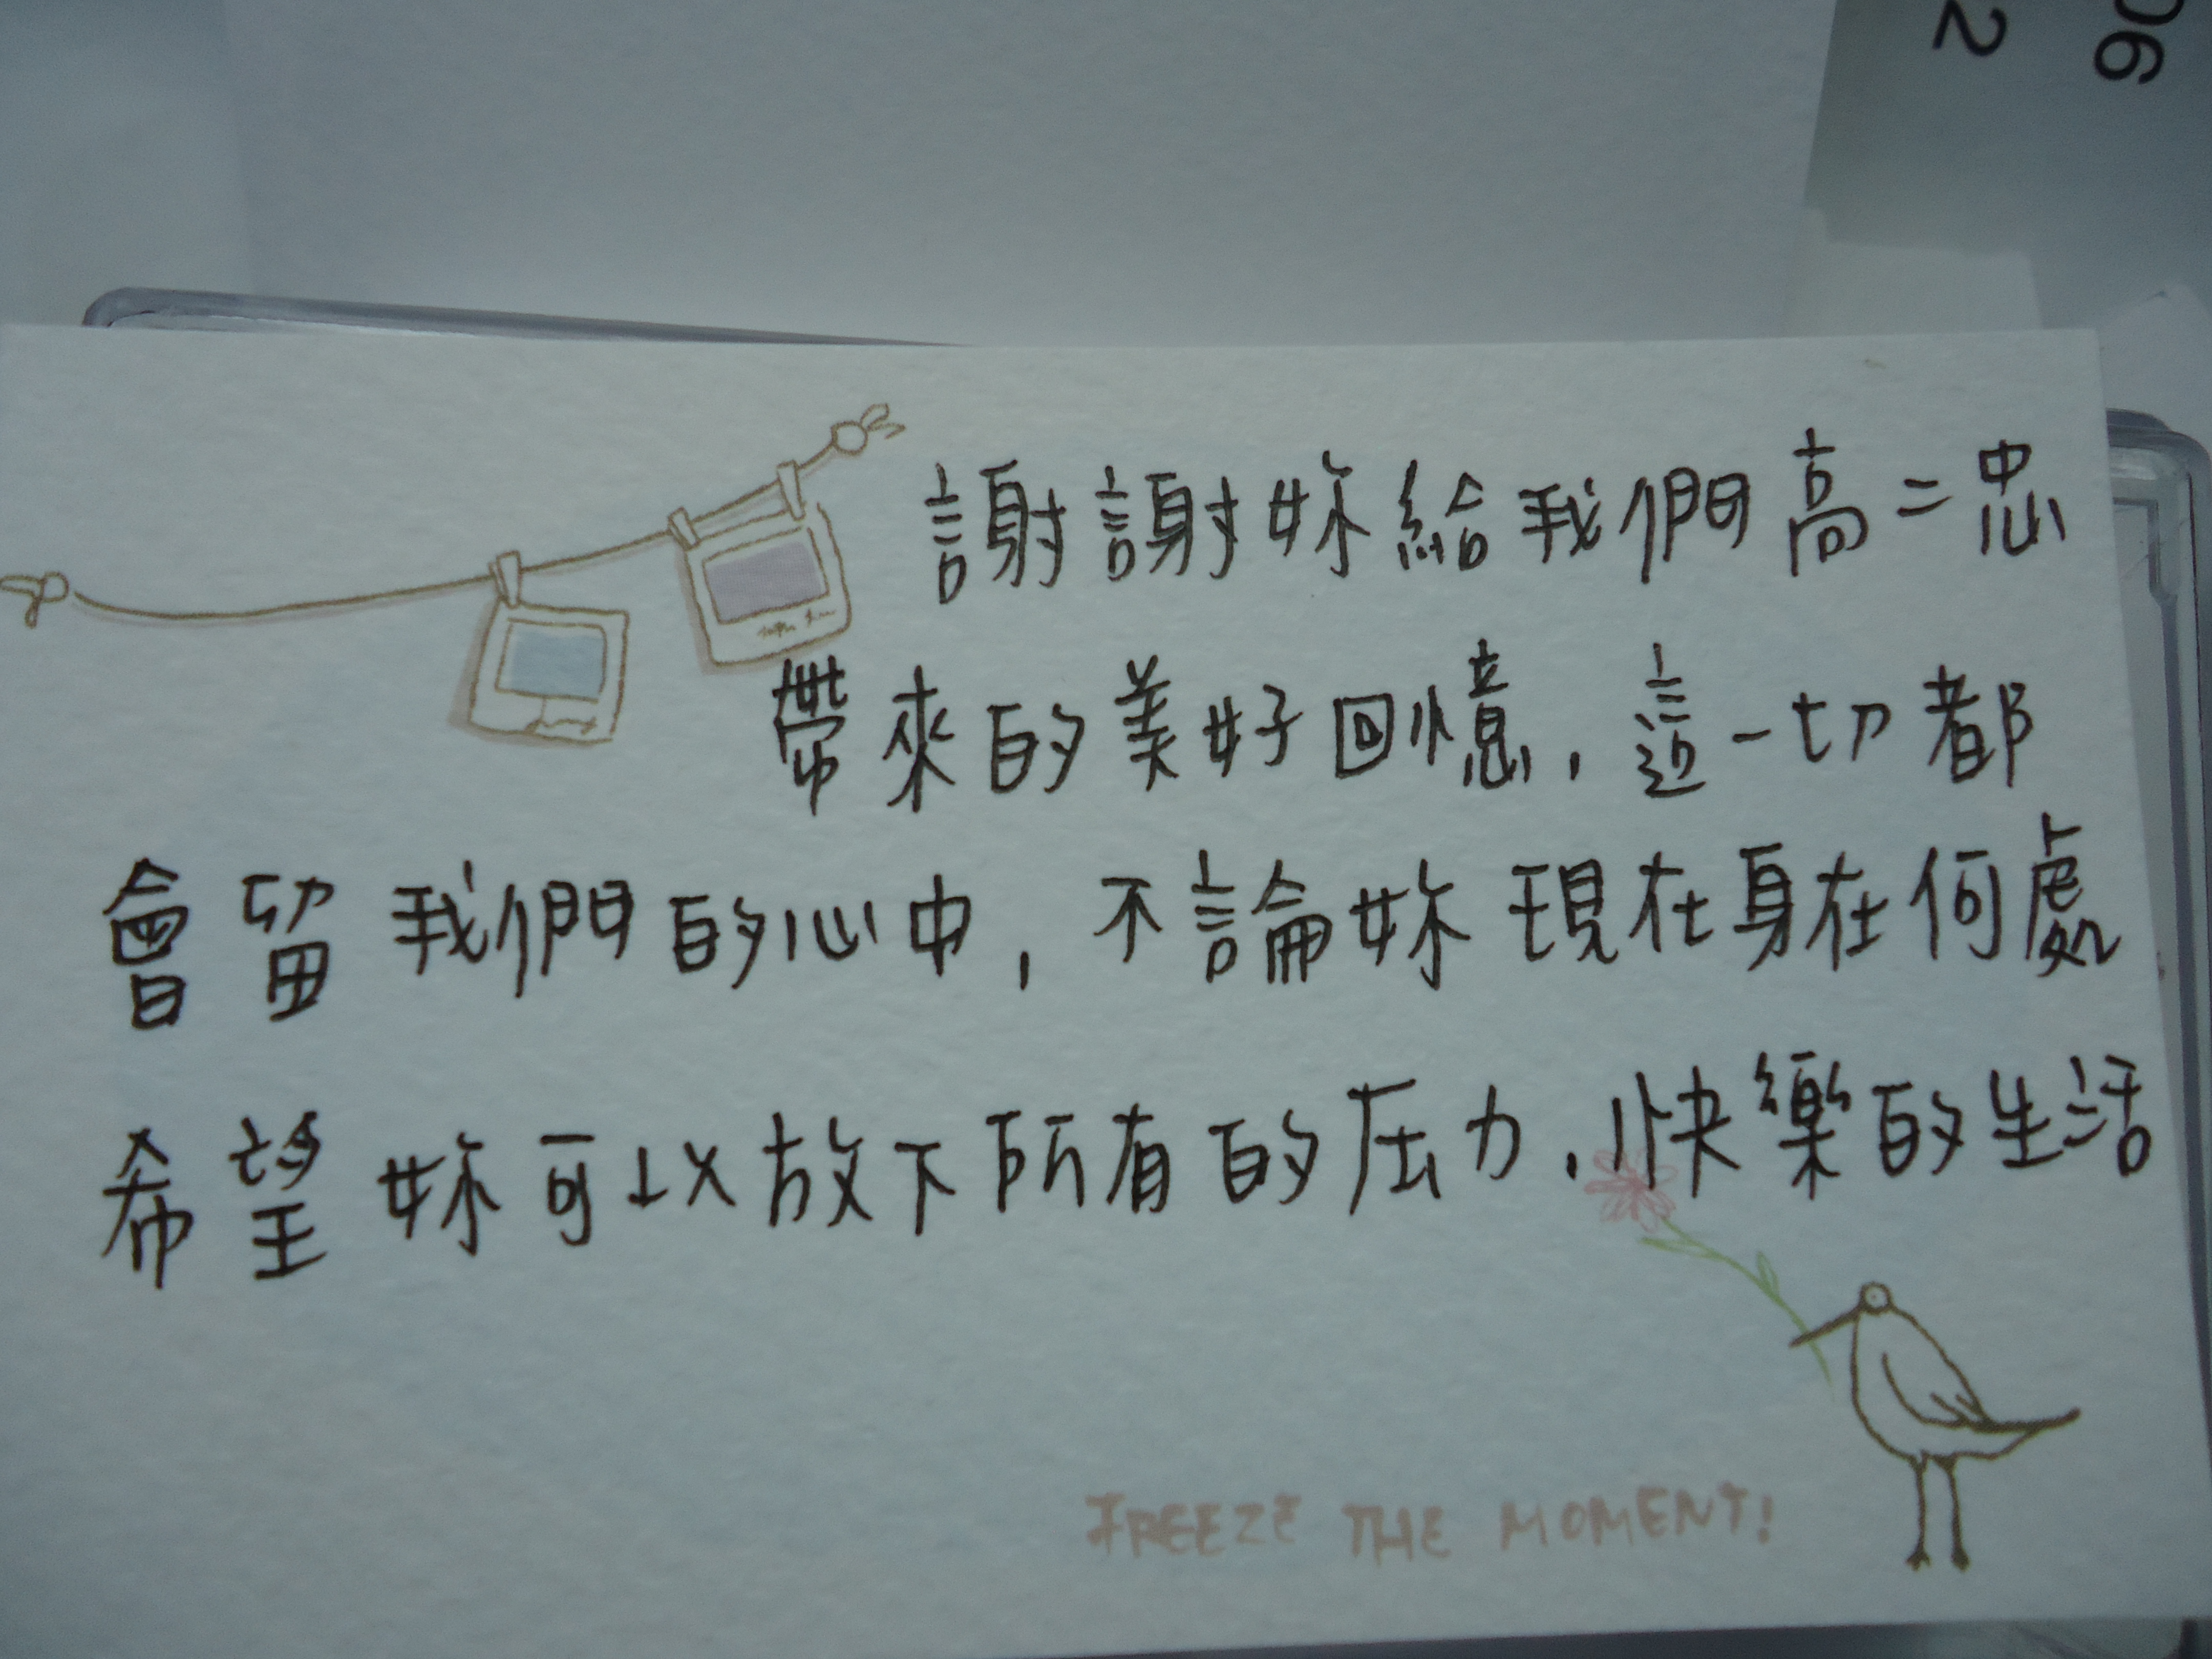 06
2
謝謝妳給我們高二忠
帶來的美好回憶，這一切都
會留我們的心中，不論妳現在身在何處
希望妳可以放下所有的压力，快樂的生活
FREEZE THE MOMENT!